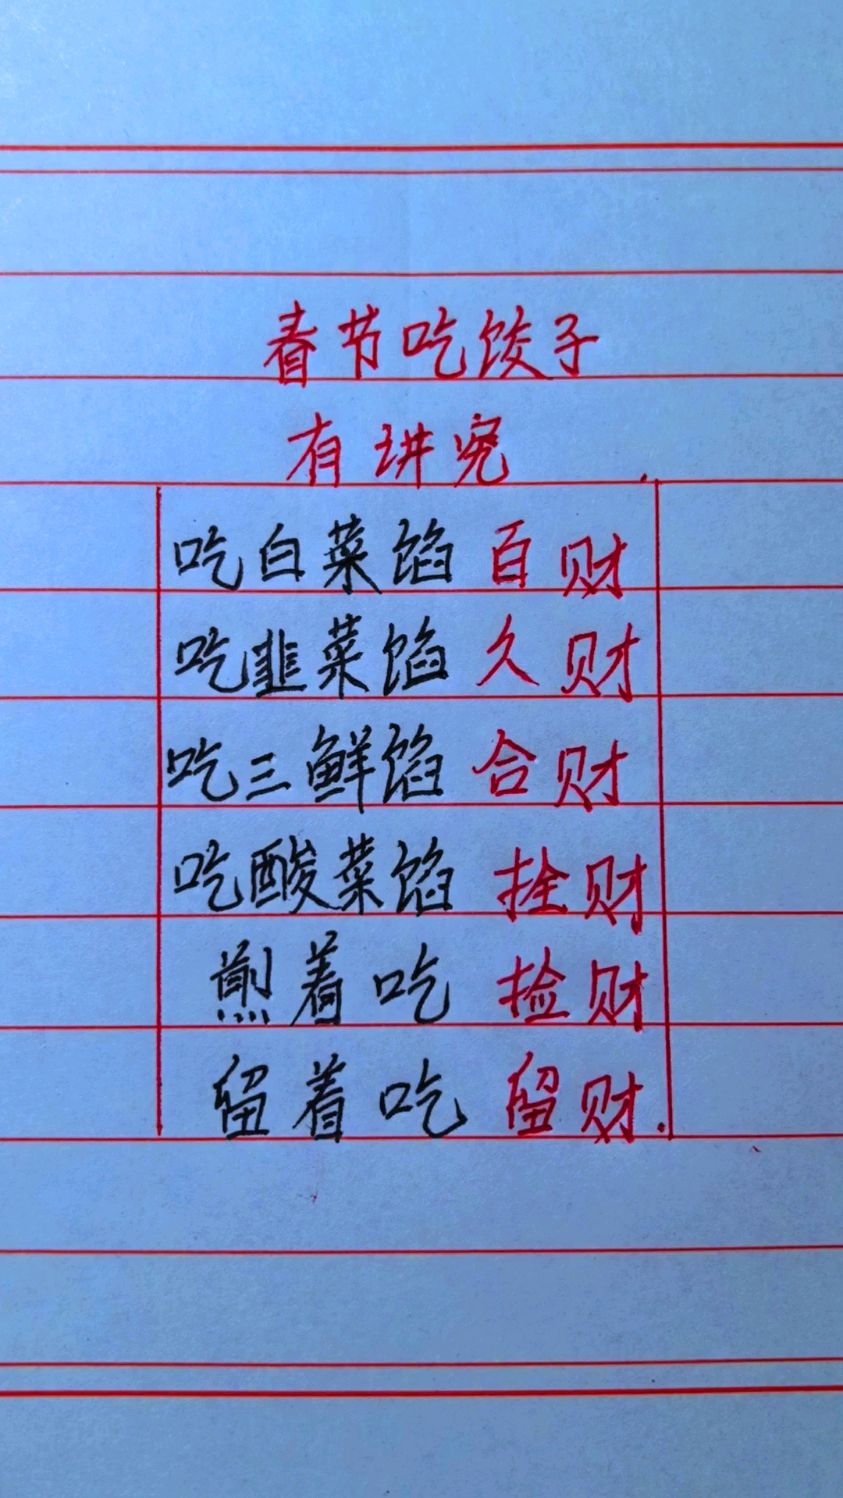 春节吃饺子
有讲究
吃白菜馅 百财
吃韭菜馅 久财
吃三鲜馅 合财
吃酸菜馅 拴财
煎着吃 捡财
留着吃 留财.